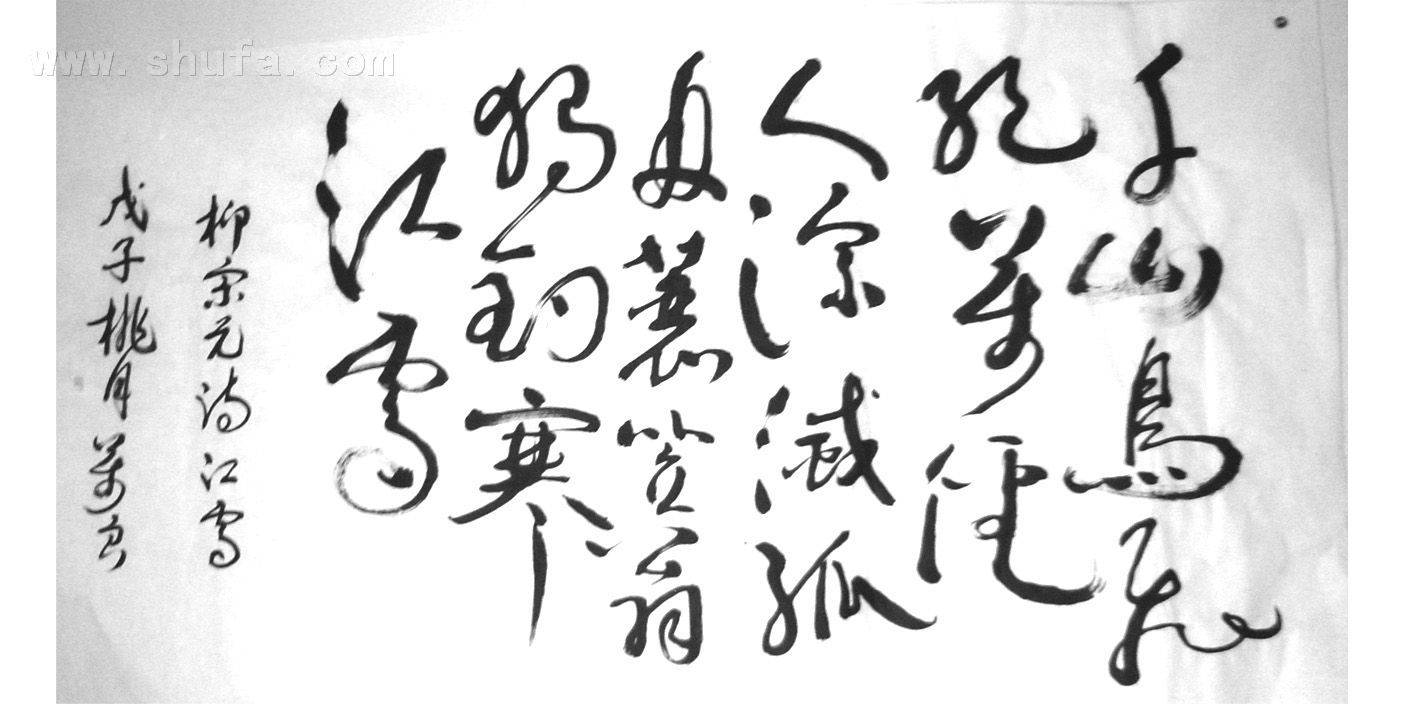 千山鳥飛
絕萬徑
人踪滅孤
舟蓑笠翁
獨釣寒
江雪
柳宗元詩江雪
戊子桃月
www.shufa.com